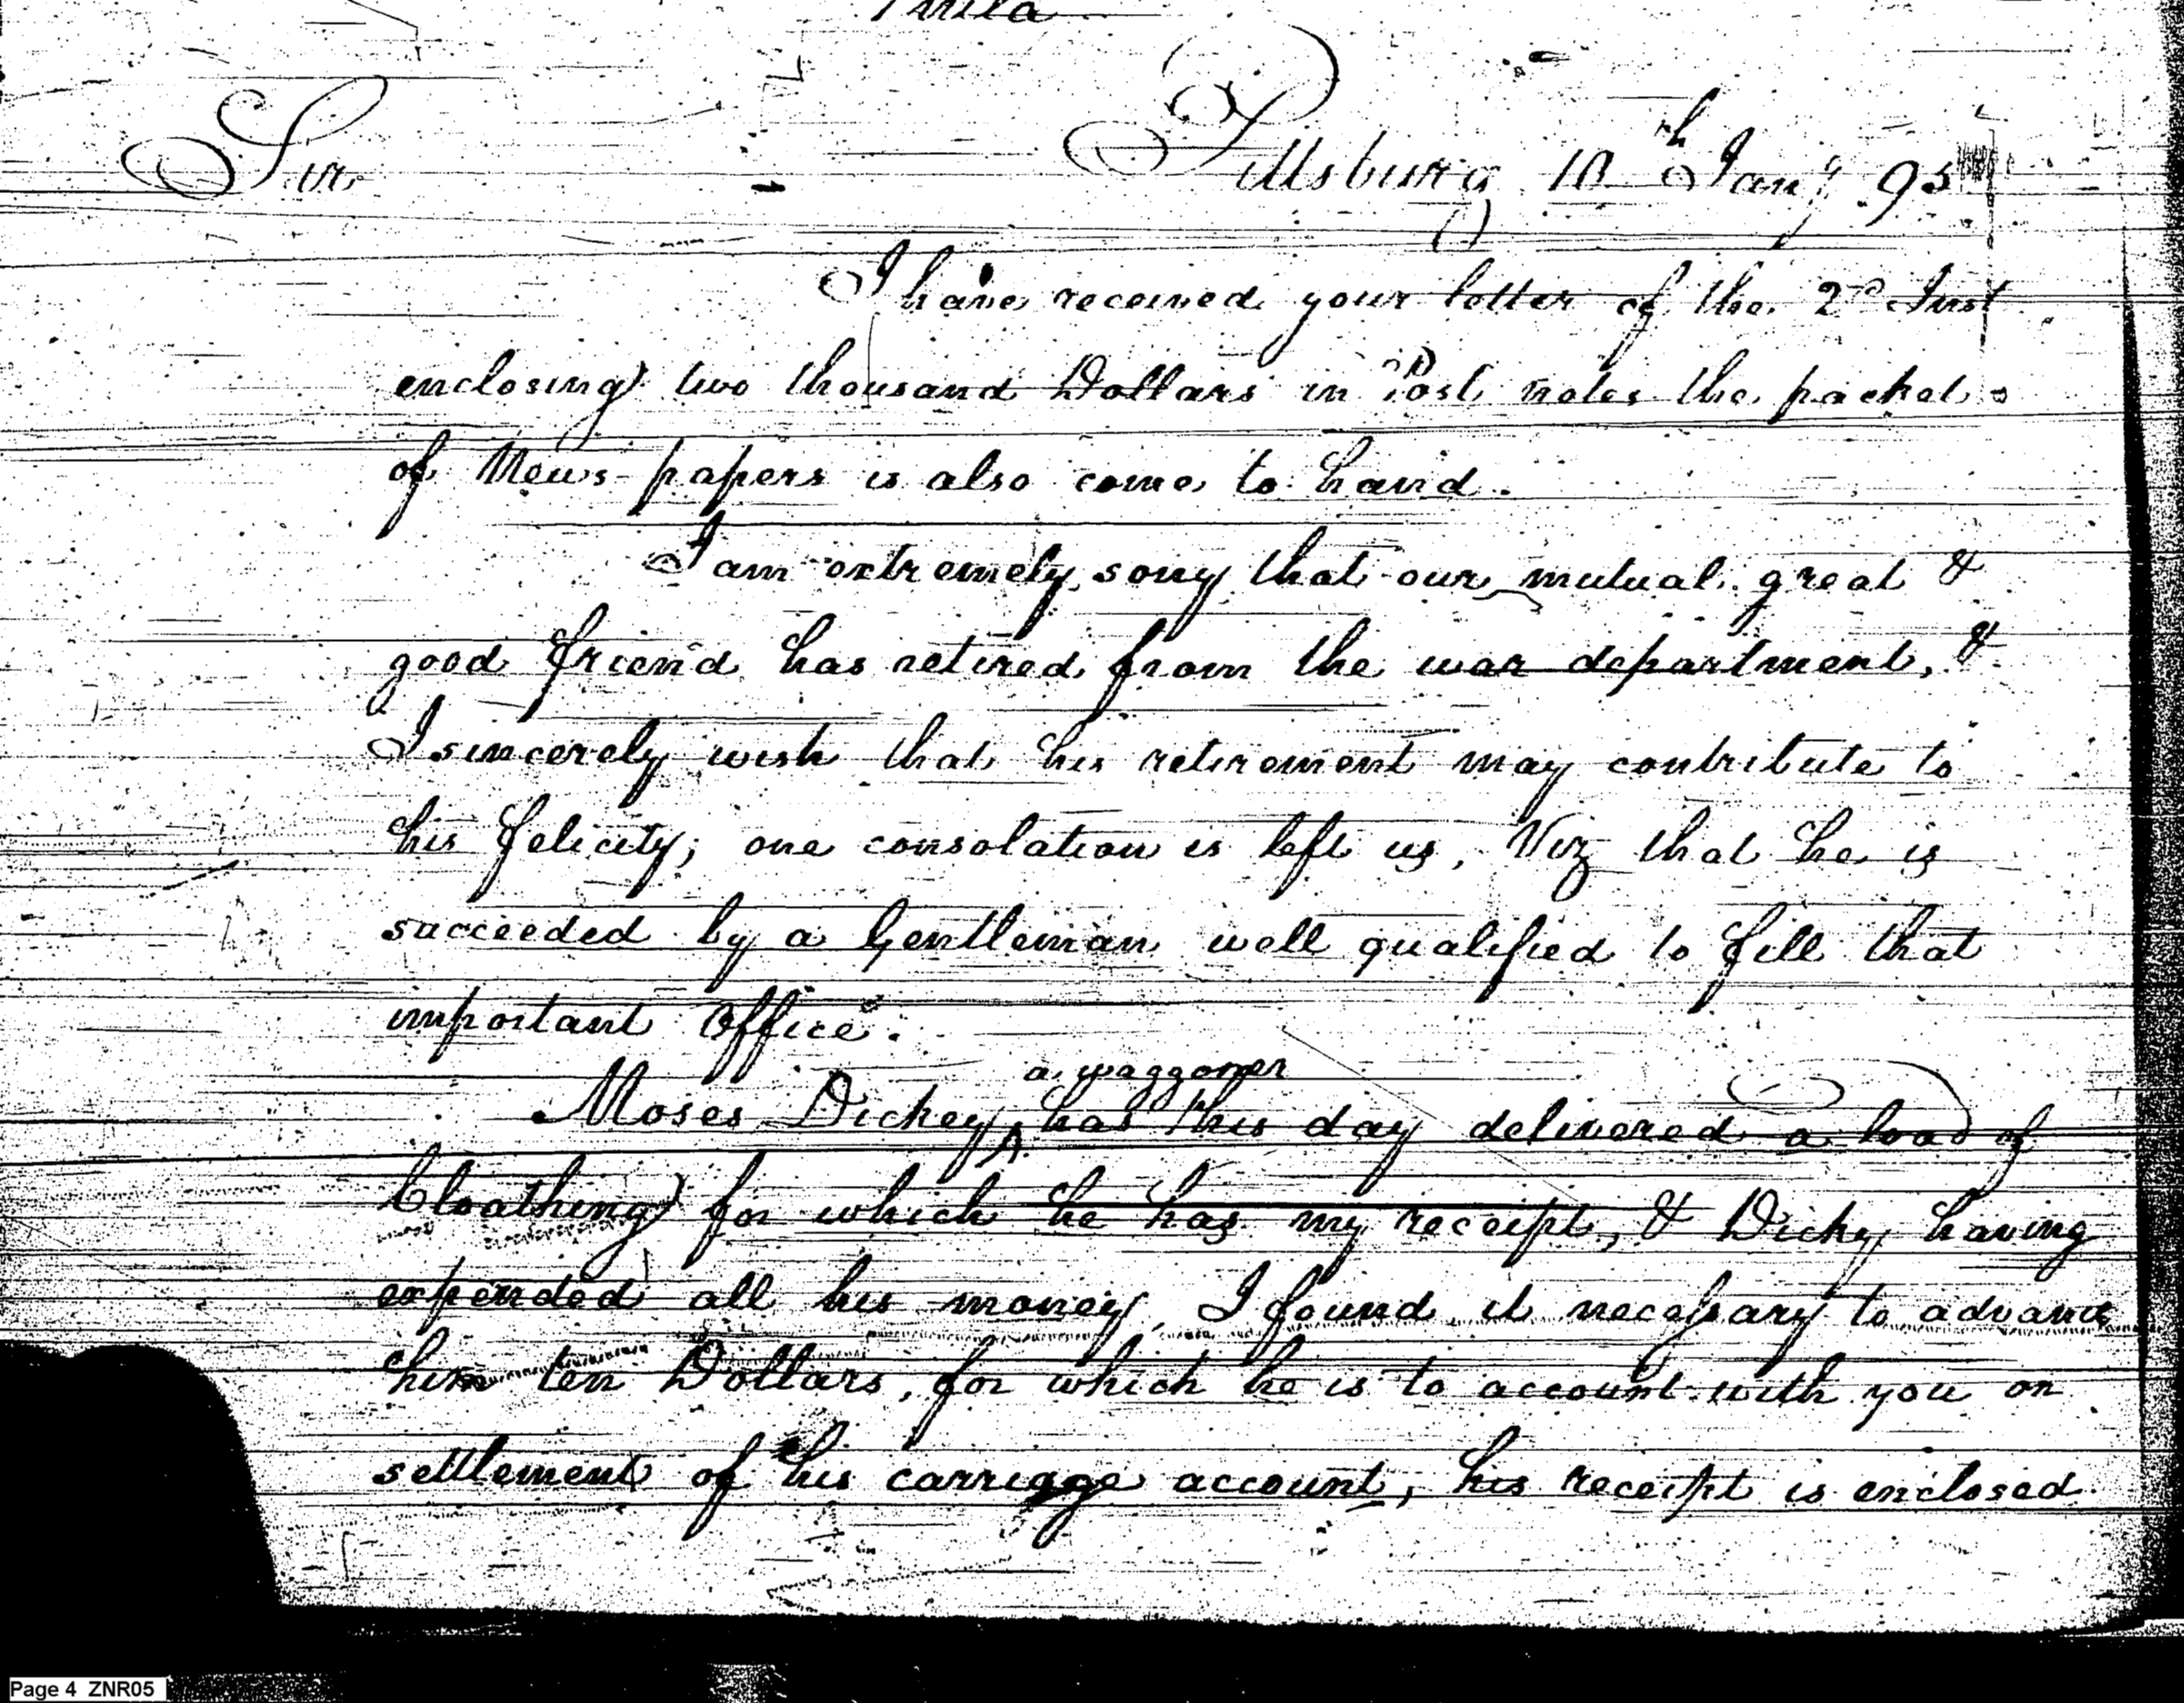 Phila
Sir Pittsburg 10th Jany 95
I have received your letter of the 2d Inst
enclosing two thousand Dollars in Post notes the packet
of News-papers is also come to hand.
I am extremely sorry that our mutual great &
good friend has retired from the war department, &
I sincerely wish that his retirement may contribute to
his felicity; one consolation is left us, Viz that he is
succeeded by a Gentleman well qualified to fill that
important office.
a waggoner
Moses Dickey ^ has this day delivered a load of
Cloathing for which he has my receipt, & Dicky having
expended all his money, I found it necessary to advance
him ten Dollars, for which he is to account with you on
settlement of his carriage account, his receipt is enclosed.
Page 4 ZNR05